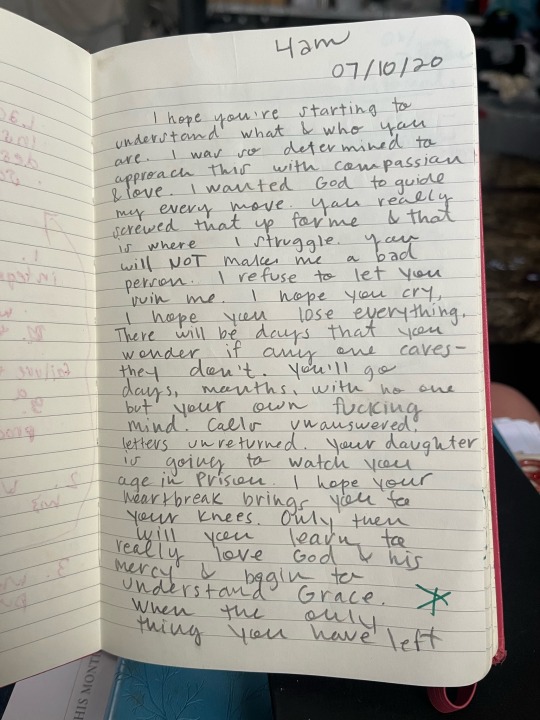 4am
07/10/20
I hope you're starting to
understand what & who you
are. I was so determined to
approach this with compassion
& love. I wanted God to guide
my every move. you really
screwed that up for me & that
is where I struggle. you
will NOT make me a bad
person. I refuse to let you
ruin me. I hope you cry,
I hope you lose everything.
There will be days that you
wonder if any one cares-
they don't. you'll go
days, months, with no one
but your own fucking
mind. Calls unanswered.
letters unreturned. your daughter
is going to watch you
age in Prison. I hope your
heartbreak brings you to
your knees. Only then
will you learn to
really love God & his
mercy & begin to
understand Grace.
When the only
thing you have left
HIS MONT